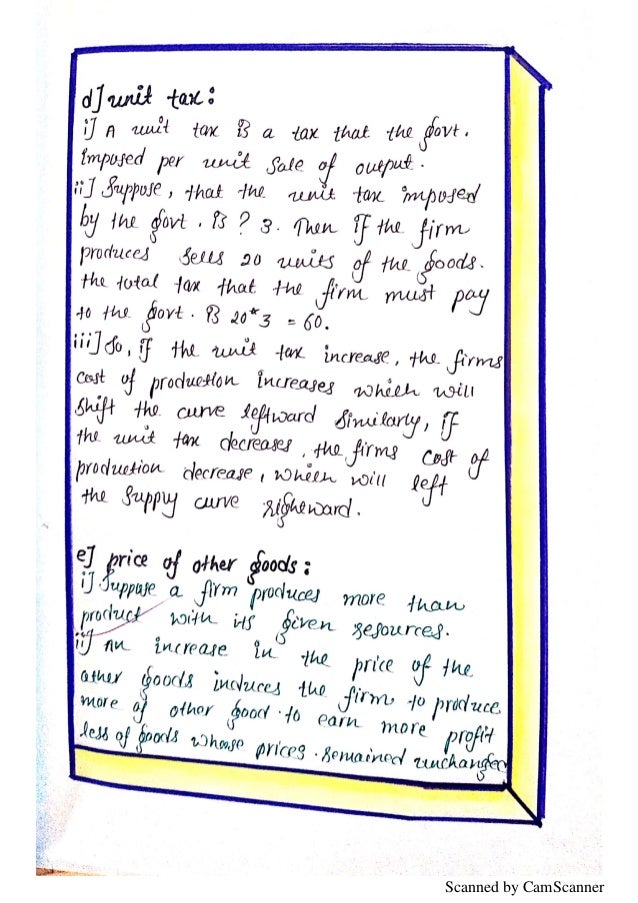 d] unit tax :
i] A unit tax is a tax that the govt.
imposed per unit sale of output.
ii] Suppose, that the unit tax imposed
by the govt. is ? 3. Then if the firm
produces sells 20 units of the goods.
the total tax that the firm must pay
to the govt. is 20*3 = 60.
iii] So, if the unit tax increase, the firms
cost of production increases which will
shift the curve leftward similarly, if
the unit tax decreases, the firms cost of
production decrease, which will left
the supply curve righeward.
e] price of other goods :
i] Suppose a firm produces more than
product with its given resources.
ii] An increase in the price of the
other goods induces the firm to produce
more of other good. to earn more profit
less of goods whoose prices. remained unchanged
Scanned by CamScanner